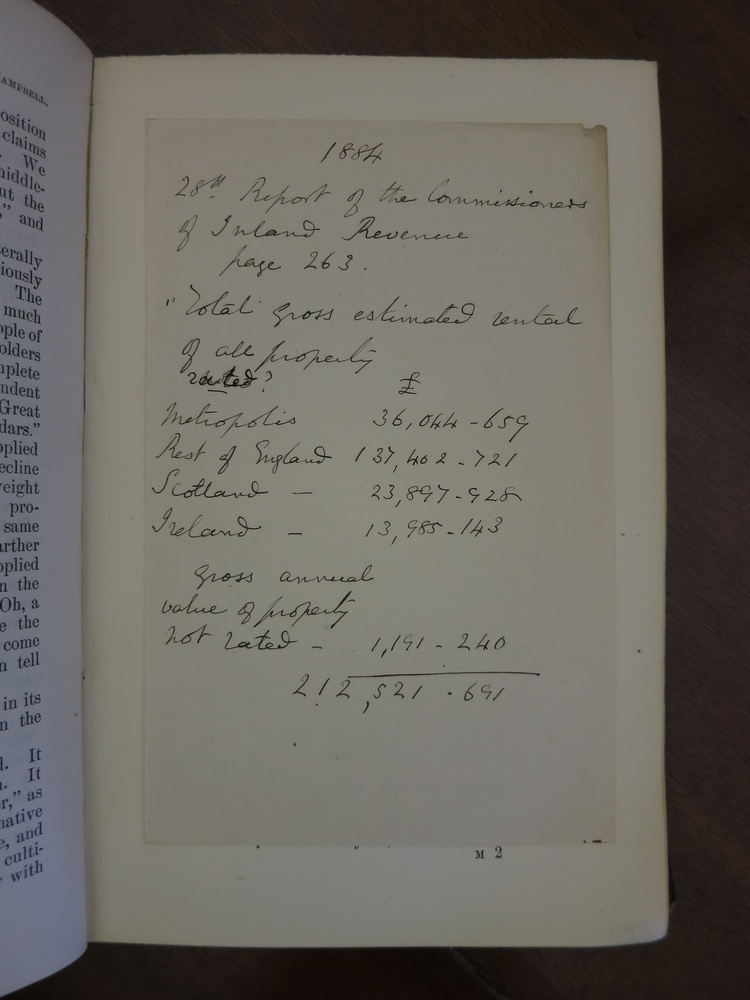 AMPBELL.
osition
claims
We
middle-
nt the
" and
erally
iously
The
much
ople of
olders
mplete
ndent
Great
dars."
pplied
ecline
weight
pro-
same
arther
pplied
n the
Oh, a
e the
come
n tell
in its
n the
d. It
n. It
r," as
native
e, and
culti-
y with
1884
28th Report of the Commissioners
of Inland Revenue
page 263.
"Total gross estimated rental
of all property
rated? £
Metropolis 36,044-659
Rest of England 137,402-721
Scotland — 23,897-928
Ireland — 13,985-143
gross annual
value of property
not rated — 1,191-240
212,521-691
M 2